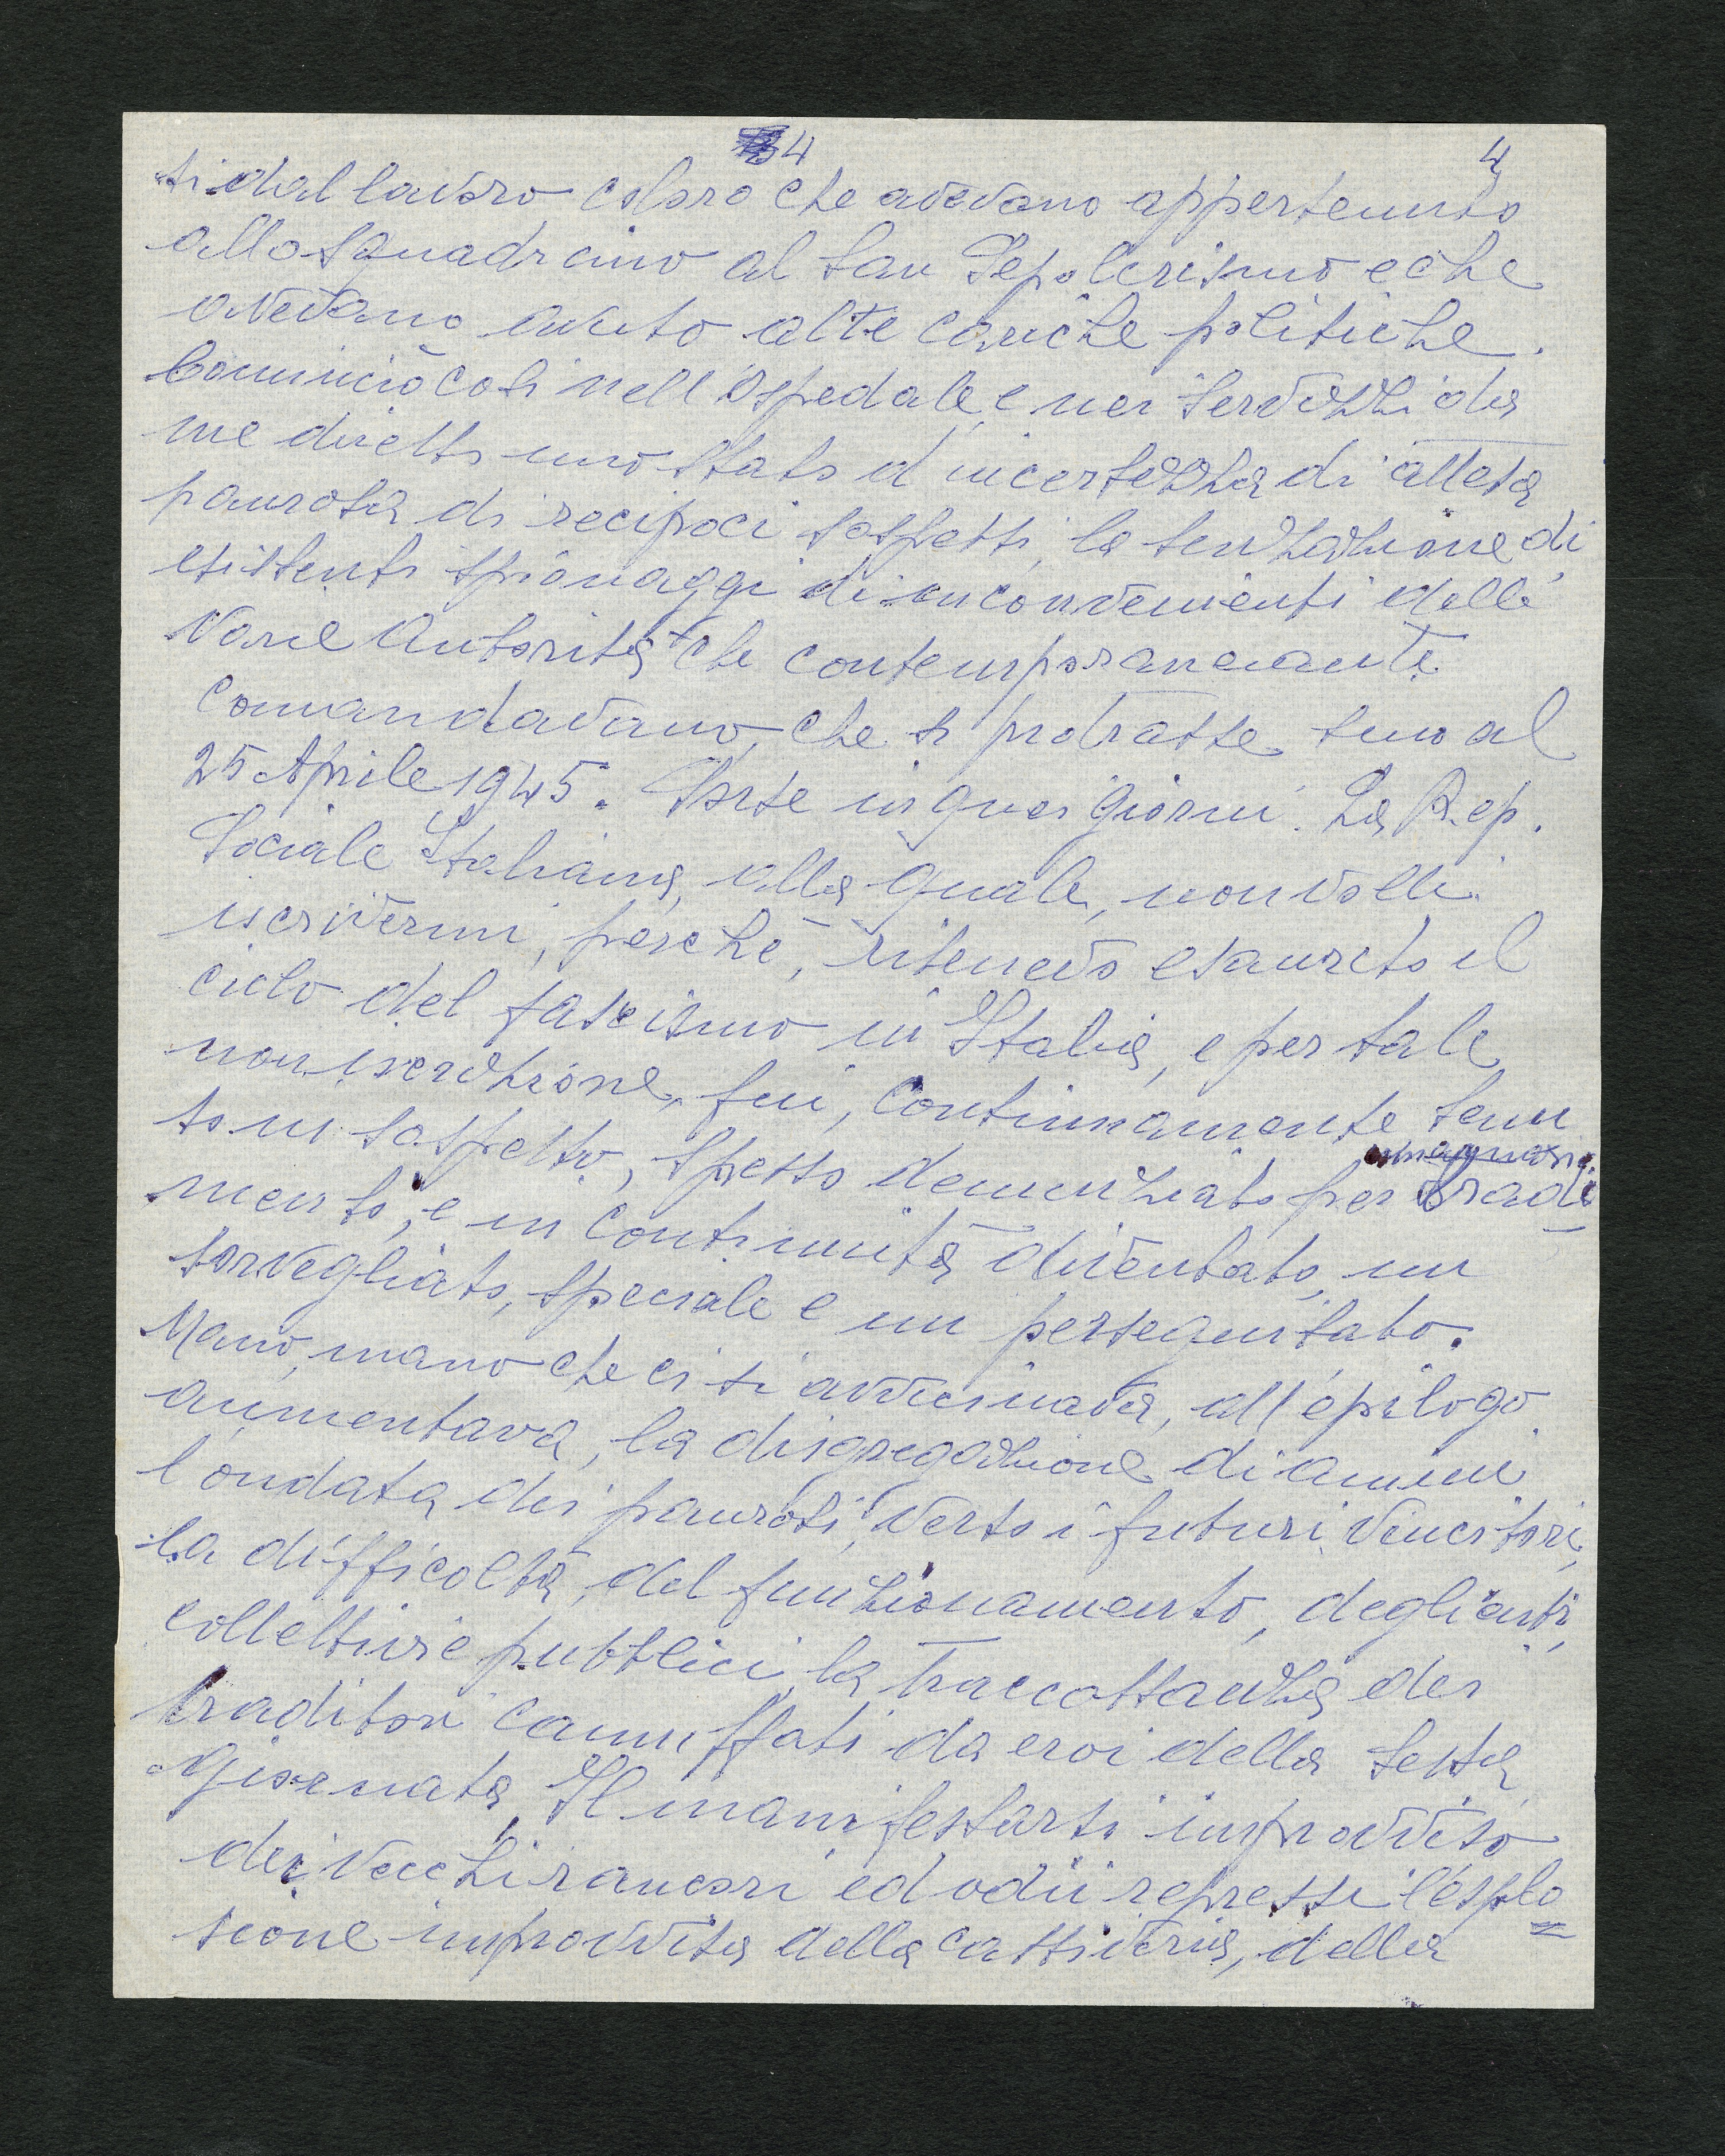 4 4
ti dal lavoro coloro che avevano appertenuto
allo squadrismo al San Sepolcrismo e che
avevano avuto alte cariche politiche.
Cominciò così nell'Ospedale, e nei servizzi da
me diretti uno stato d'incertezza di attesa
paurosa di recipoci sospetti, la senzazione di
esistenti spionaggi di inconvenienti delle
varie Autorità che contemporaneamente
comandavano, che si protrasse sino al
25 Aprile 1945. Sorse in quei giorni. La Rep.
Sociale Italiana, alla quale, non volli
iscrivermi, perchè, ritenevo esaurito il
ciclo del fascismo in Italia, e per tale
non iscrizione, fui, continuamente tenu
to in sospetto, spesso denunziato per tradi
mento, e in continuità diventato, un
sorvegliato, speciale e un perseguitato.
Mano, mano che ci si avvicinava, all'epilogo
aumentava, la disgregazione di animi
l'ondata dei paurosi, verso i futuri vincitori,
la difficoltà, del funzionamento, degli enti,
collettivi e pubblici, la traccottanza dei
traditori camuffati da eroi della sesta
giornata, Il manifestarsi improvviso
dei vecchi rancori ed odii repressi l'esplo=
sione improvvisa della cattiveria, della